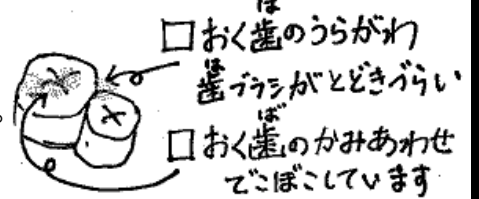 □おく歯のうらがわ
歯ブラシがとどきづらい
□おく歯のかみあわせ
でこぼこしています